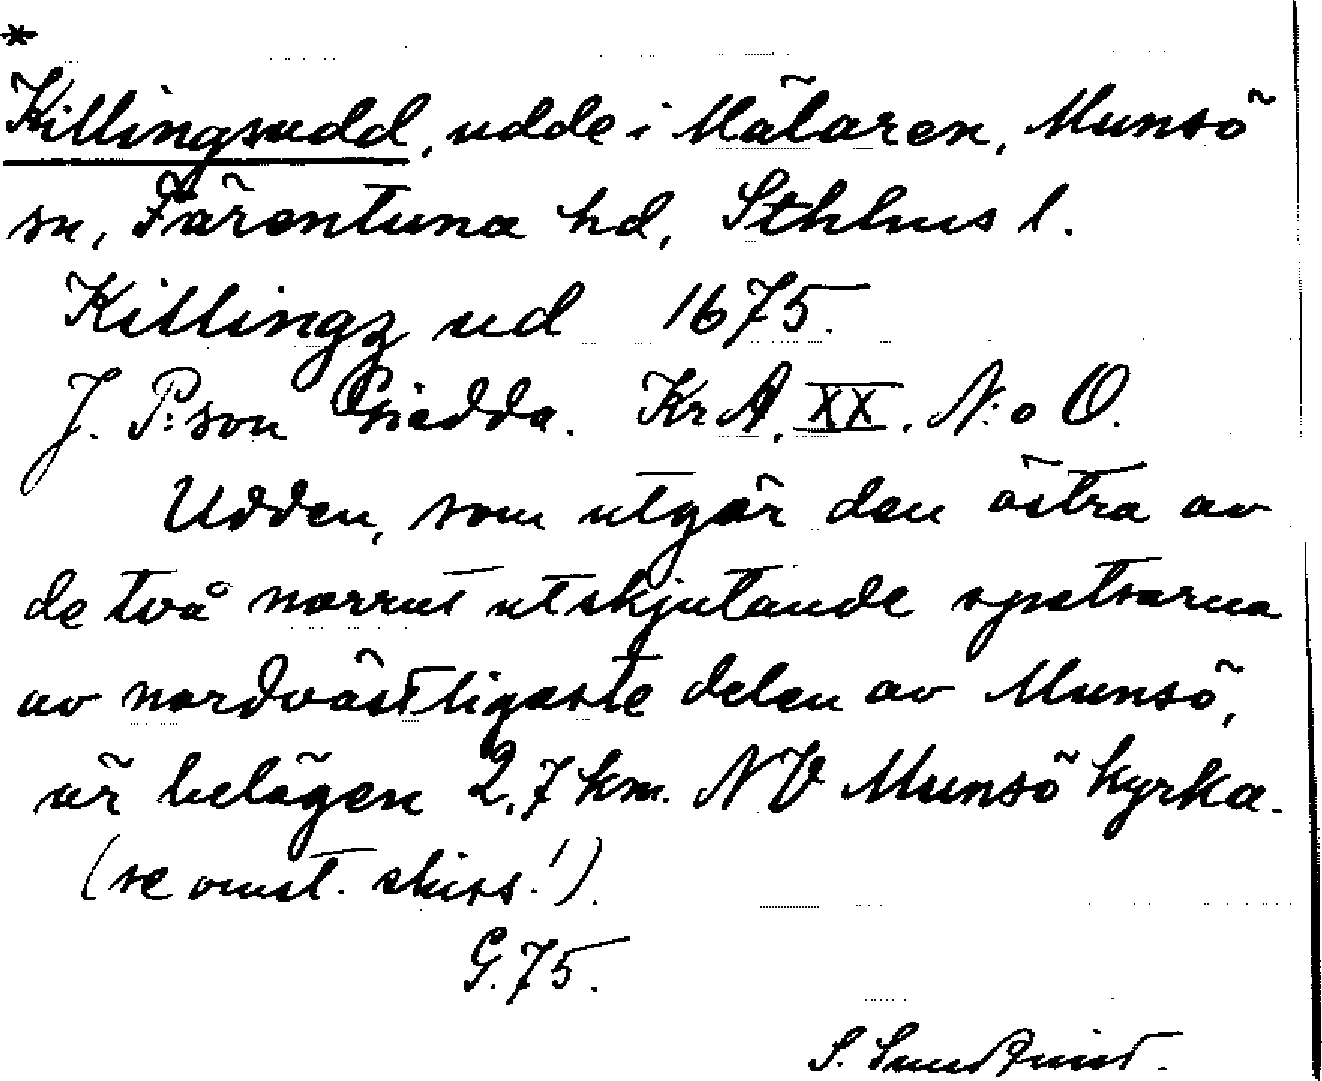 *
Killingsudd, udde i Mälaren, Munsö
sn, Färentuna hd, Sthlms l.
Killingz ud 1675.
J. P:son Giedda. KrA, XX. N:o O.
Udden, som utgör den östra av
de två norrut utskjutande spetsarna
av nordvästligaste delen av Munsö,
är belägen 2,7 km. NV Munsö kyrka.
(se omst. skiss!).
G. 75.
S.